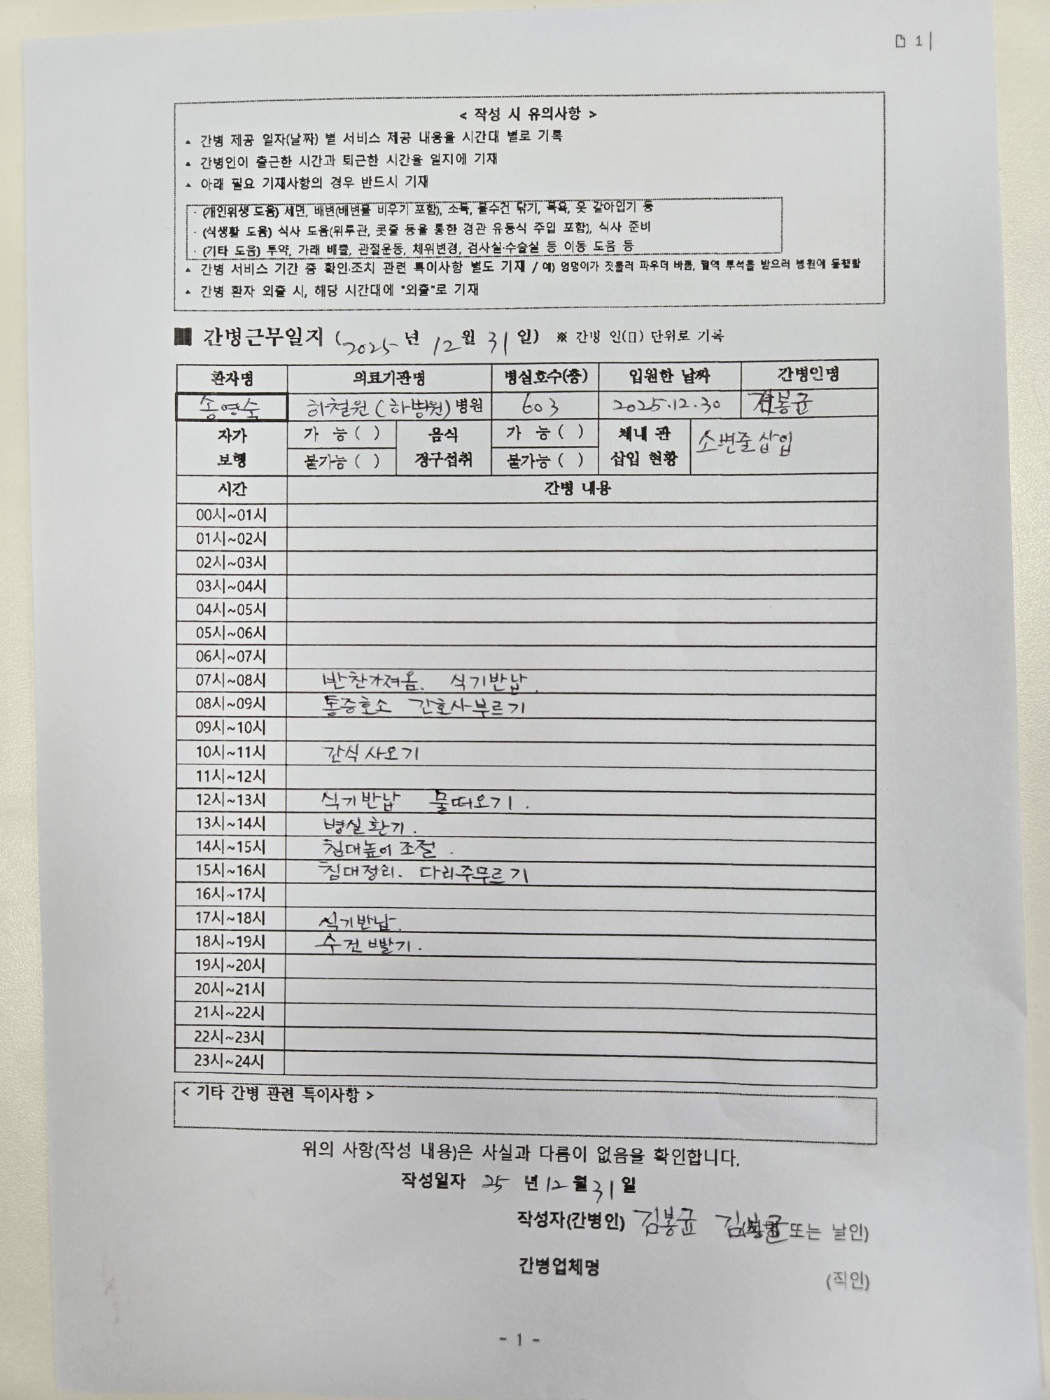 1
< 작성 시 유의사항 >
▲ 간병 제공 일자(날짜) 별 서비스 제공 내용을 시간대 별로 기록
▲ 간병인이 출근한 시간과 퇴근한 시간을 일지에 기재
▲ 아래 필요 기재사항의 경우 반드시 기재
· (개인위생 도움) 세면, 배변(배변물 비우기 포함), 소독, 물수건 닦기, 목욕, 옷 갈아입기 등
· (식생활 도움) 식사 도움(위루관, 콧줄 등을 통한 경관 유동식 주입 포함), 식사 준비
· (기타 도움) 투약, 가래 배출, 관절운동, 체위변경, 검사실·수술실 등 이동 도움 등
▲ 간병 서비스 기간 중 확인·조치 관련 특이사항 별도 기재 / 예) 엉덩이가 짓물러 파우더 바름, 혈액 투석을 받으러 병원에 동행함
▲ 간병 환자 외출 시, 해당 시간대에 "외출"로 기재
■ 간병근무일지 (2025년 12월 31일) ※ 간병 인(□) 단위로 기록
환자명 의료기관명 병실호수(층) 입원한 날짜 간병인명
송영숙 하철원(하병원)병원 603 2025.12.30 김봉균
자가 보행 가 능 ( ) 불가능 ( ) 음식 경구섭취 가 능 ( ) 불가능 ( ) 체내 관 삽입 현황 소변줄 삽입
시간 간병 내용
00시~01시
01시~02시
02시~03시
03시~04시
04시~05시
05시~06시
06시~07시
07시~08시 반찬가져옴. 식기반납.
08시~09시 통증호소 간호사부르기
09시~10시
10시~11시 간식사오기
11시~12시
12시~13시 식기반납 물떠오기.
13시~14시 병실환기.
14시~15시 침대높이 조절.
15시~16시 침대정리. 다리주무르기
16시~17시
17시~18시 식기반납.
18시~19시 수건빨기.
19시~20시
20시~21시
21시~22시
22시~23시
23시~24시
< 기타 간병 관련 특이사항 >
위의 사항(작성 내용)은 사실과 다름이 없음을 확인합니다.
작성일자 25 년 12 월 31 일
작성자(간병인) 김봉균 김봉균 또는 날인)
간병업체명
(직인)
- 1 -